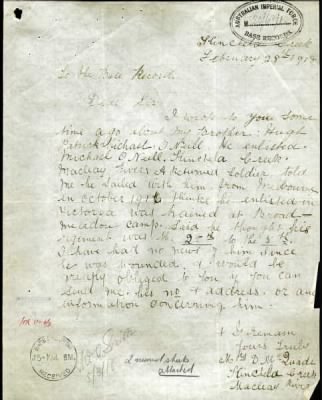 AUSTRALIAN IMPERIAL FORCE
BASE RECORDS
Kinchela Creek
February 28th 1918
To the Base Records
Dear Sir
I wrote to you some
time ago about my Brother: Hugh
Patrick Michael O'Neill. He enlisted
Michael O'Neill. Kinchela Creek
Macleay River. A returned Soldier told
me he Sailed with them from Melbourne
in October 191 I think he enlisted in
Victoria was trained at Broad-
meadow camp. Said he thought his
regiment was the 2nd to the
I have had no news of him since
he was wounded. I would
verify obliged to you if you can
send me his no & address. or any
information concerning him.
I Remain
Yours Truly
Mrs D Mc Quade
Kinchela Creek
Macleay River
2 normal shots
attached
RECEIVED